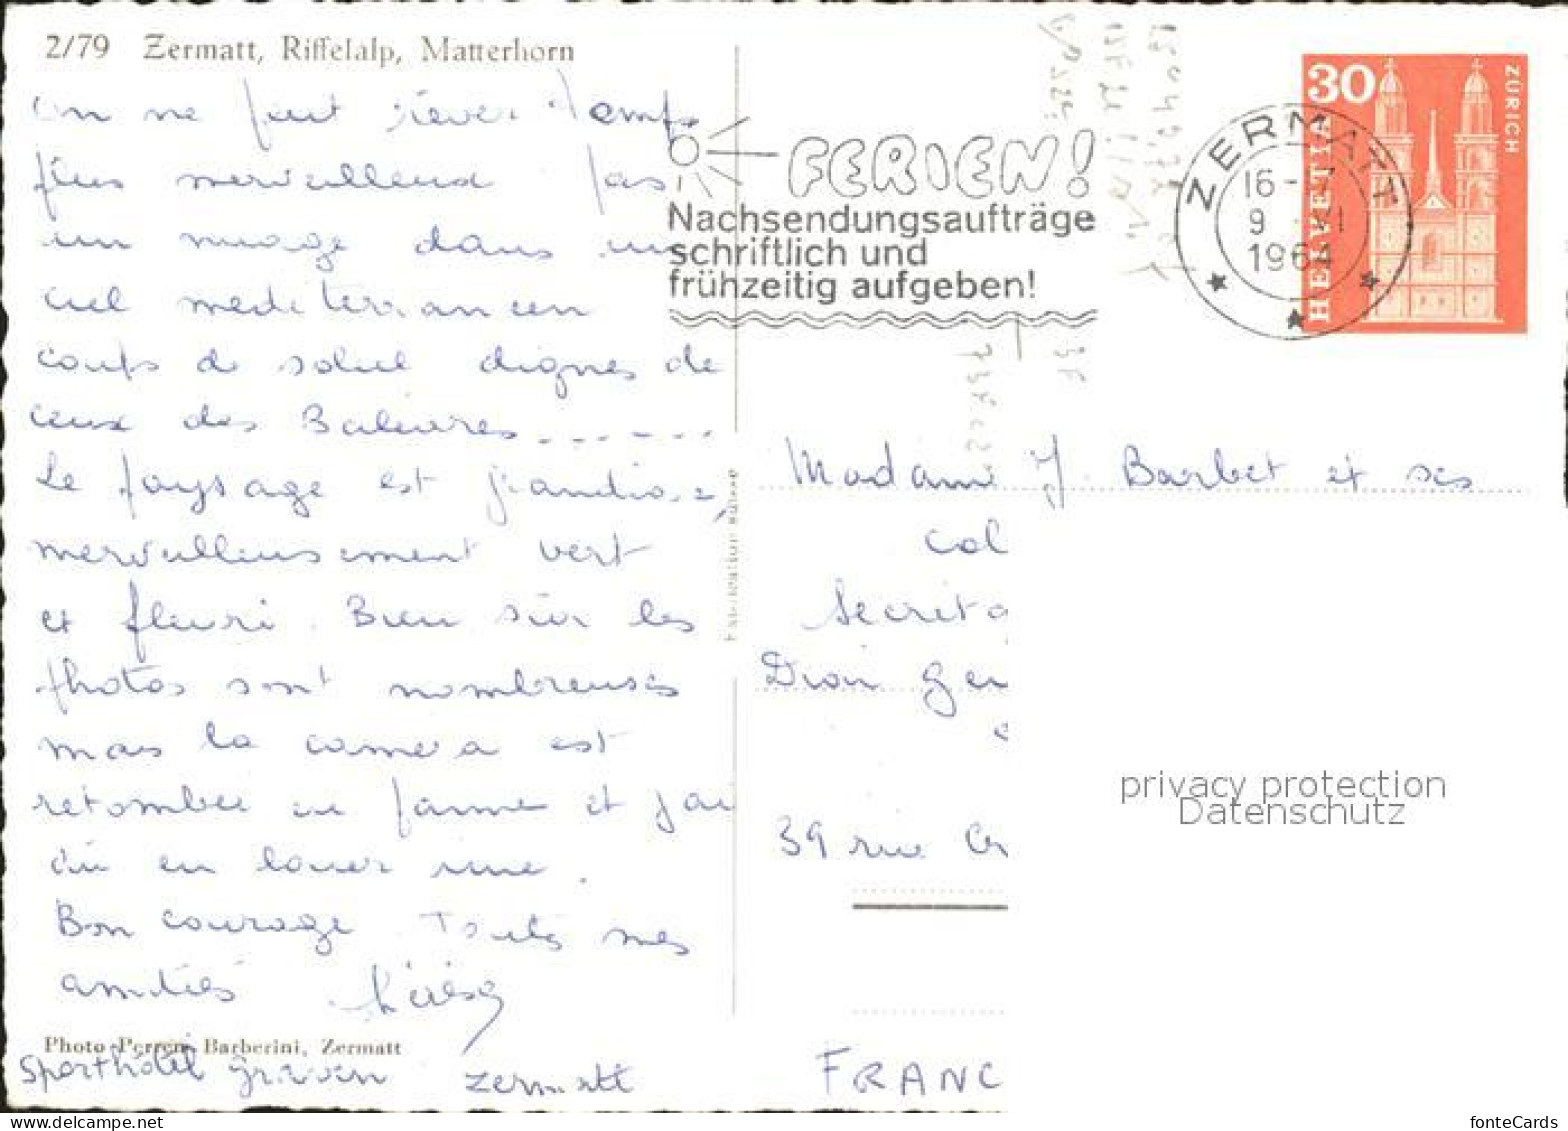 2/79 Zermatt, Riffelalp, Matterhorn
On ne peut rêver temps
plus merveilleux pas
un nuage dans un
ciel mediterraneen
coups de soleil dignes de
ceux des Baleares ......
Le paysage est grandiose,
merveilleusement vert
et fleuri. Bien sûr les
photos sont nombreuses
mais la camera est
retombée en panne et j'ai
dû en louer une.
Bon courage Toutes mes
amitiés
Photo Perren-Barberini, Zermatt
Sporthôtel Graven Zermatt
FERIEN!
Nachsendungsaufträge
schriftlich und
frühzeitig aufgeben!
ZERMATT
16-17
9 VI
1964
30
HELVETIA
ZÜRICH
Madame J. Barbet et ses
col
Secreta
Dion Gen
39 rue
FRANC
privacy protection
Datenschutz
www.delcampe.net
fonteCards